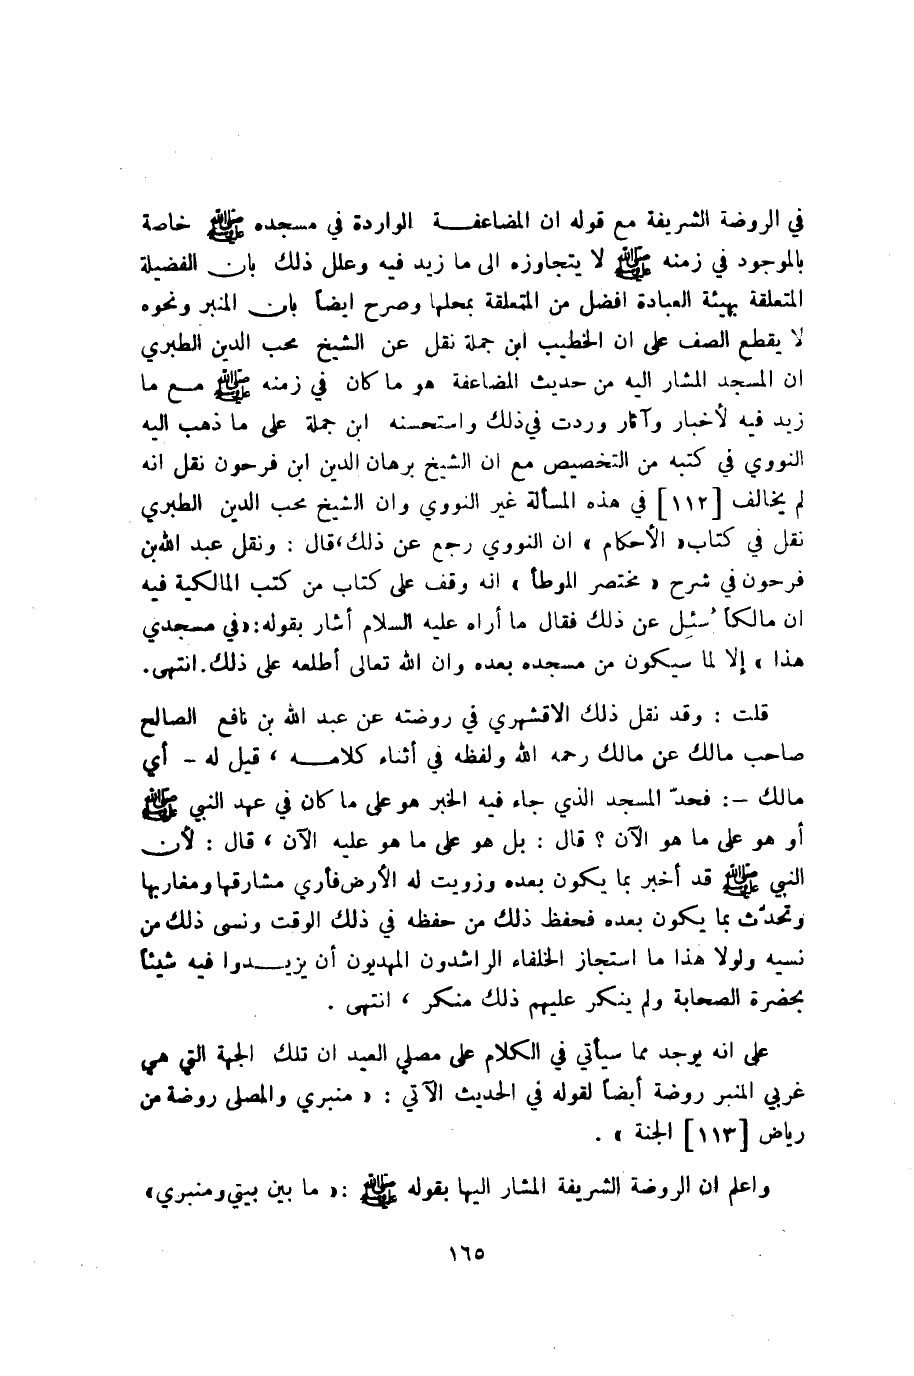 في الروضة الشريفة مع قوله ان المضاعفة الواردة في مسجده ﷺ خاصة
بالموجود في زمنه ﷺ لا يتجاوزه الى ما زيد فيه وعلل ذلك بان الفضيلة
المتعلقة بهيئة العبادة افضل من المتعلقة بمحلها وصرح ايضاً بان المنبر ونحوه
لا يقطع الصف على ان الخطيب ابن جملة نقل عن الشيخ محب الدين الطبري
ان المسجد المشار اليه من حديث المضاعفة هو ما كان في زمنه ﷺ مع ما
زيد فيه لأخبار وآثار وردت في ذلك واستحسنه ابن جملة على ما ذهب اليه
النووي في كتبه من التخصيص مع ان الشيخ برهان الدين ابن فرحون نقل انه
لم يخالف [١١٢] في هذه المسألة غير النووي وان الشيخ محب الدين الطبري
نقل في كتاب « الأحكام » ان النووي رجع عن ذلك، قال : ونقل عبد الله بن
فرحون في شرح « مختصر الموطأ » انه وقف على كتاب من كتب المالكية فيه
ان مالكاً سُئِل عن ذلك فقال ما أراه عليه السلام أشار بقوله: «في مسجدي
هذا » إلا لما سيكون من مسجده بعده وان الله تعالى أطلعه على ذلك. انتهى.
قلت : وقد نقل ذلك الاقشهري في روضته عن عبد الله بن نافع الصالح
صاحب مالك عن مالك رحمه الله ولفظه في أثناء كلامه ، قيل له - أي
مالك -: فحدّ المسجد الذي جاء فيه الخبر هو على ما كان في عهد النبي ﷺ
أو هو على ما هو الآن ؟ قال : بل هو على ما هو عليه الآن ، قال : لأن
النبي ﷺ قد أخبر بما يكون بعده وزويت له الأرض فأري مشارقها ومغاربها
وتحدّث بما يكون بعده فحفظ ذلك من حفظه في ذلك الوقت ونسى ذلك من
نسيه ولولا هذا ما استجاز الخلفاء الراشدون المهديون أن يزيدوا فيه شيئاً
بحضرة الصحابة ولم ينكر عليهم ذلك منكر ، انتهى .
على انه يوجد مما سيأتي في الكلام على مصلي العيد ان تلك الجهة التي هي
غربي المنبر روضة أيضاً لقوله في الحديث الآتي : « منبري والمصلى روضة من
رياض [١١٣] الجنة » .
واعلم ان الروضة الشريفة المشار اليها بقوله ﷺ :« ما بين بيتي ومنبري»
١٦٥